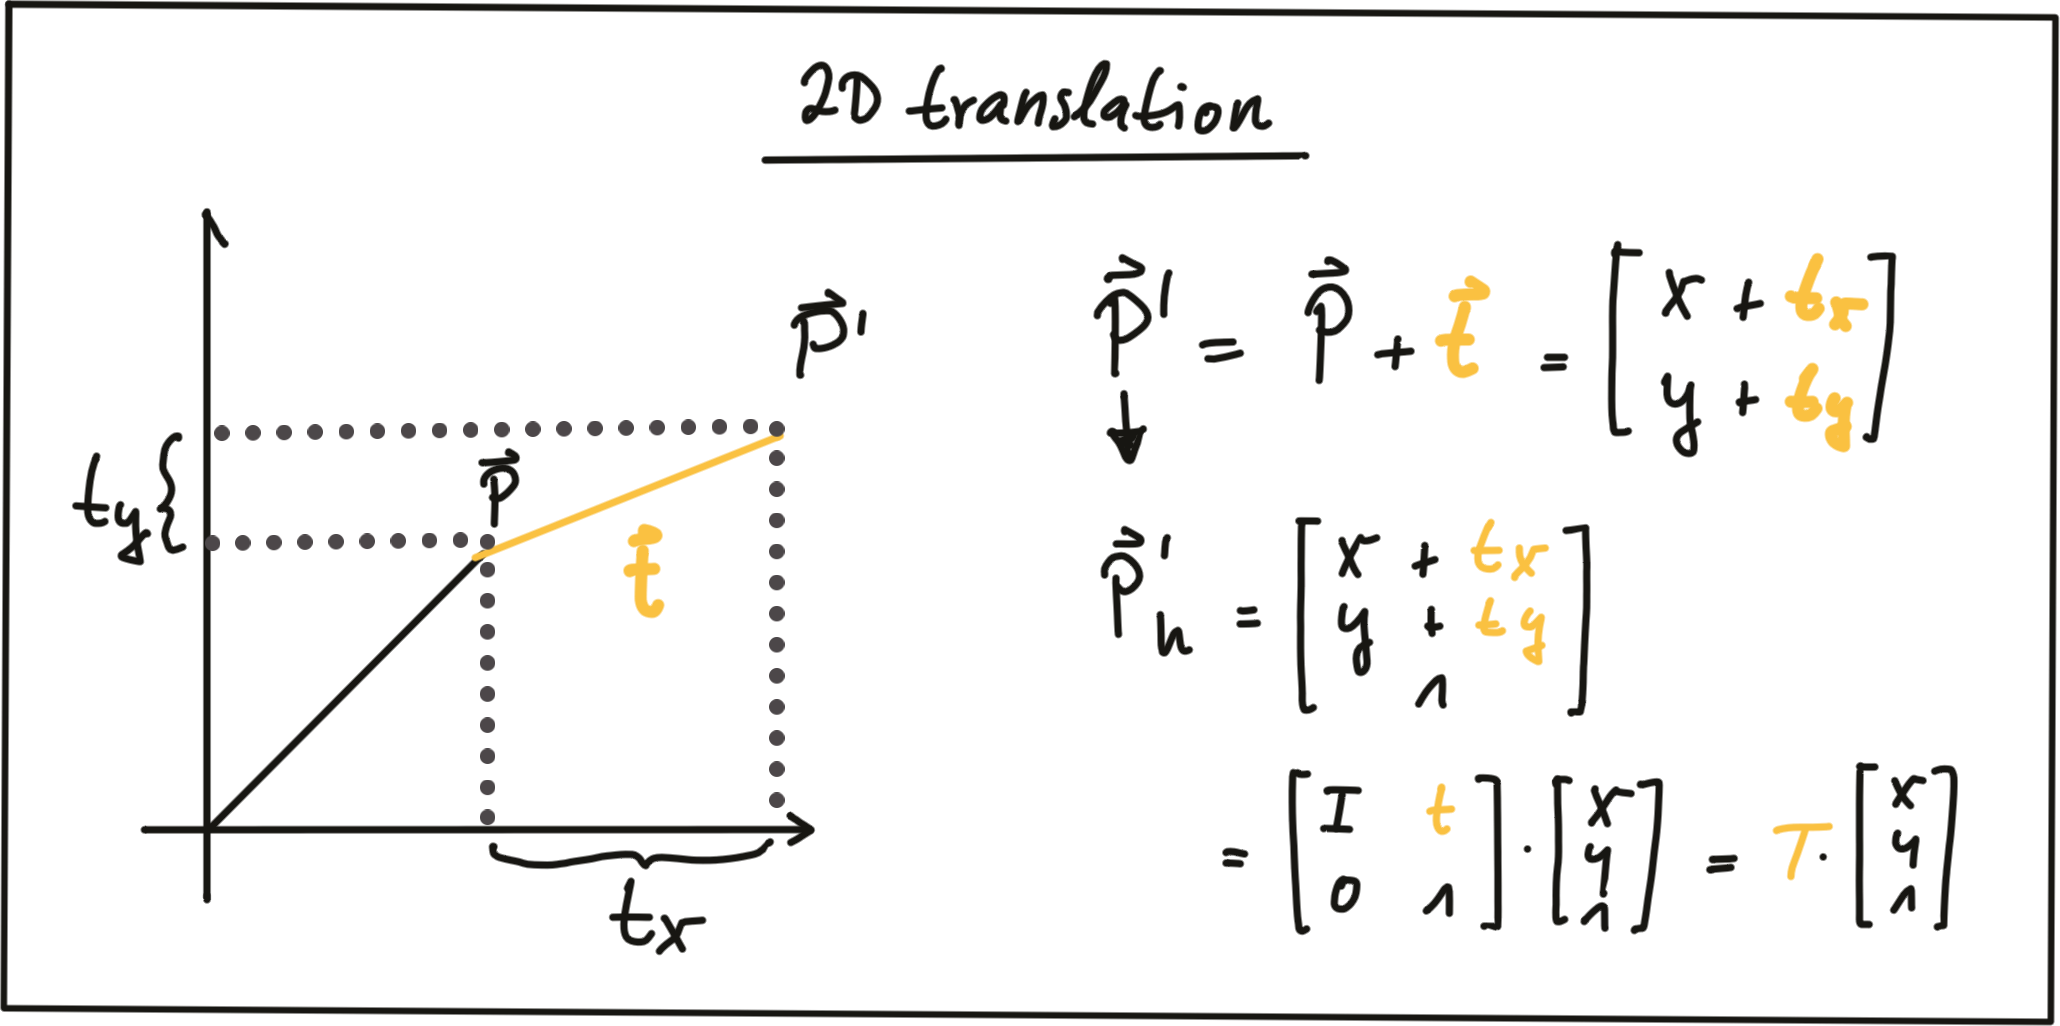 2D translation
p⃗'
p⃗
t⃗
t_y {
t_x
p⃗' = p⃗ + t⃗ = [x + t_x
y + t_y]
p⃗'_h = [x + t_x
y + t_y
1]
= [I t
0 1] · [x
y
1] = T · [x
y
1]